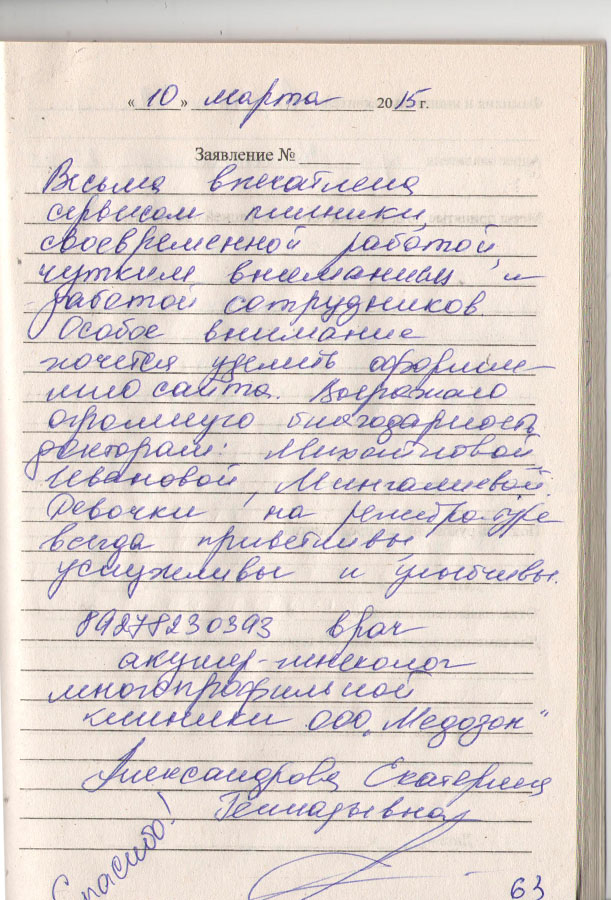 « 10 » марта 2015 г.
Заявление №
Весьма впечатлена
сервисом клиники,
своевременной работой,
чутким вниманием и
работой сотрудников.
Особое внимание
хочется уделить оформле-
нию сайта. Выражаю
огромную благодарность
докторам: Михайловой,
Ивановой, Мингалиевой.
Девочки на регистратуре
всегда приветливы
услужливы и улыбчивы.
89278230393 врач
акушер-гинеколог
многопрофильной
клиники ООО „Медозон"
Александрова Екатерина
Геннадьевна
Спасибо!
63